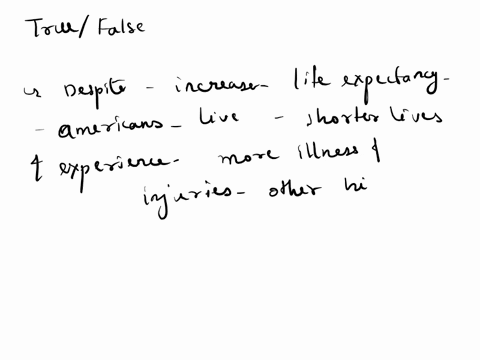 True/False
Despite - increase - life expectancy -
- americans - live - shorter lives
& experience - more illness &
injuries - other hi